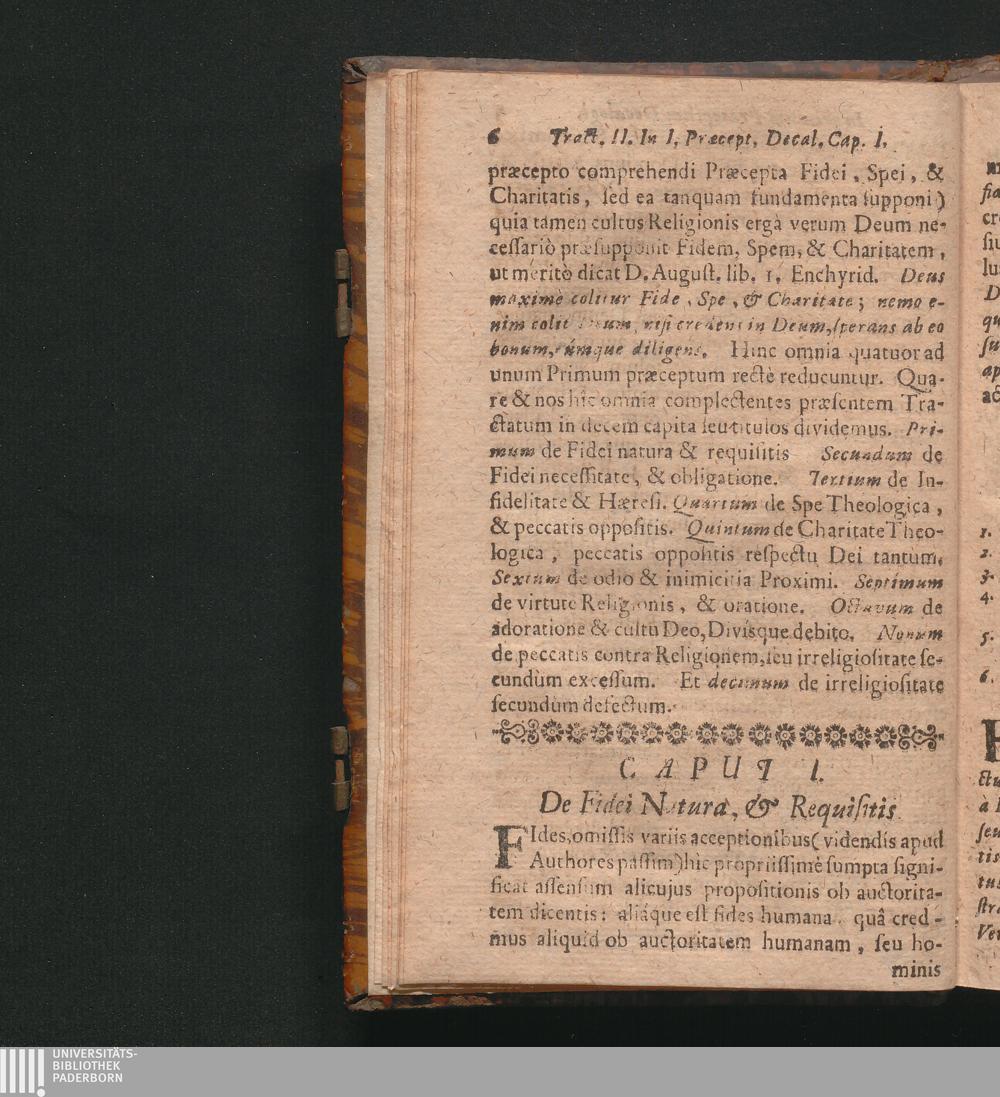 6 Tract. II. In I. Præcept. Decal. Cap. I.
præcepto comprehendi Præcepta Fidei, Spei, &
Charitatis, ſed ea tanquam fundamenta ſupponi)
quia tamen cultus Religionis ergà verum Deum ne-
ceſſariò præſupponit Fidem, Spem, & Charitatem,
ut meritò dicat D. Auguſt. lib. 1. Enchyrid. Deus
maximè colitur Fide, Spe, & Charitate; nemo e-
nim colit Deum, niſi credens in Deum, ſperans ab eo
bonum, eúmque diligens. Hinc omnia quatuor ad
unum Primum præceptum rectè reducuntur. Qua-
re & nos hîc omnia complectentes præſentem Tra-
ctatum in decem capita ſeu titulos dividemus. Pri-
mum de Fidei natura & requiſitis Secundum de
Fidei neceſſitate, & obligatione. Tertium de In-
fidelitate & Hæreſi. Quartum de Spe Theologica,
& peccatis oppoſitis. Quintum de Charitate Theo-
logica, peccatis oppoſitis reſpectu Dei tantùm.
Sextum de odio & inimicitia Proximi. Septimum
de virtute Religionis, & oratione. Octavum de
adoratione & cultu Deo, Divîsque debito. Nonum
de peccatis contra Religionem, ſeu irreligioſitate ſe-
cundùm exceſſum. Et decimum de irreligioſitate
ſecundùm defectum.
CAPUT I.
De Fidei Natura, & Requiſitis.
FIdes, omiſſis variis acceptionibus (videndis apud
Authores paſſim) hîc propriiſſimè ſumpta ſigni-
ficat aſſenſum alicujus propoſitionis ob auctorita-
tem dicentis: aliáque eſt fides humana, quâ cred-
mus aliquid ob auctoritatem humanam, ſeu ho-
minis
1.
2.
3.
4.
5.
6.
UNIVERSITÄTS-
BIBLIOTHEK
PADERBORN